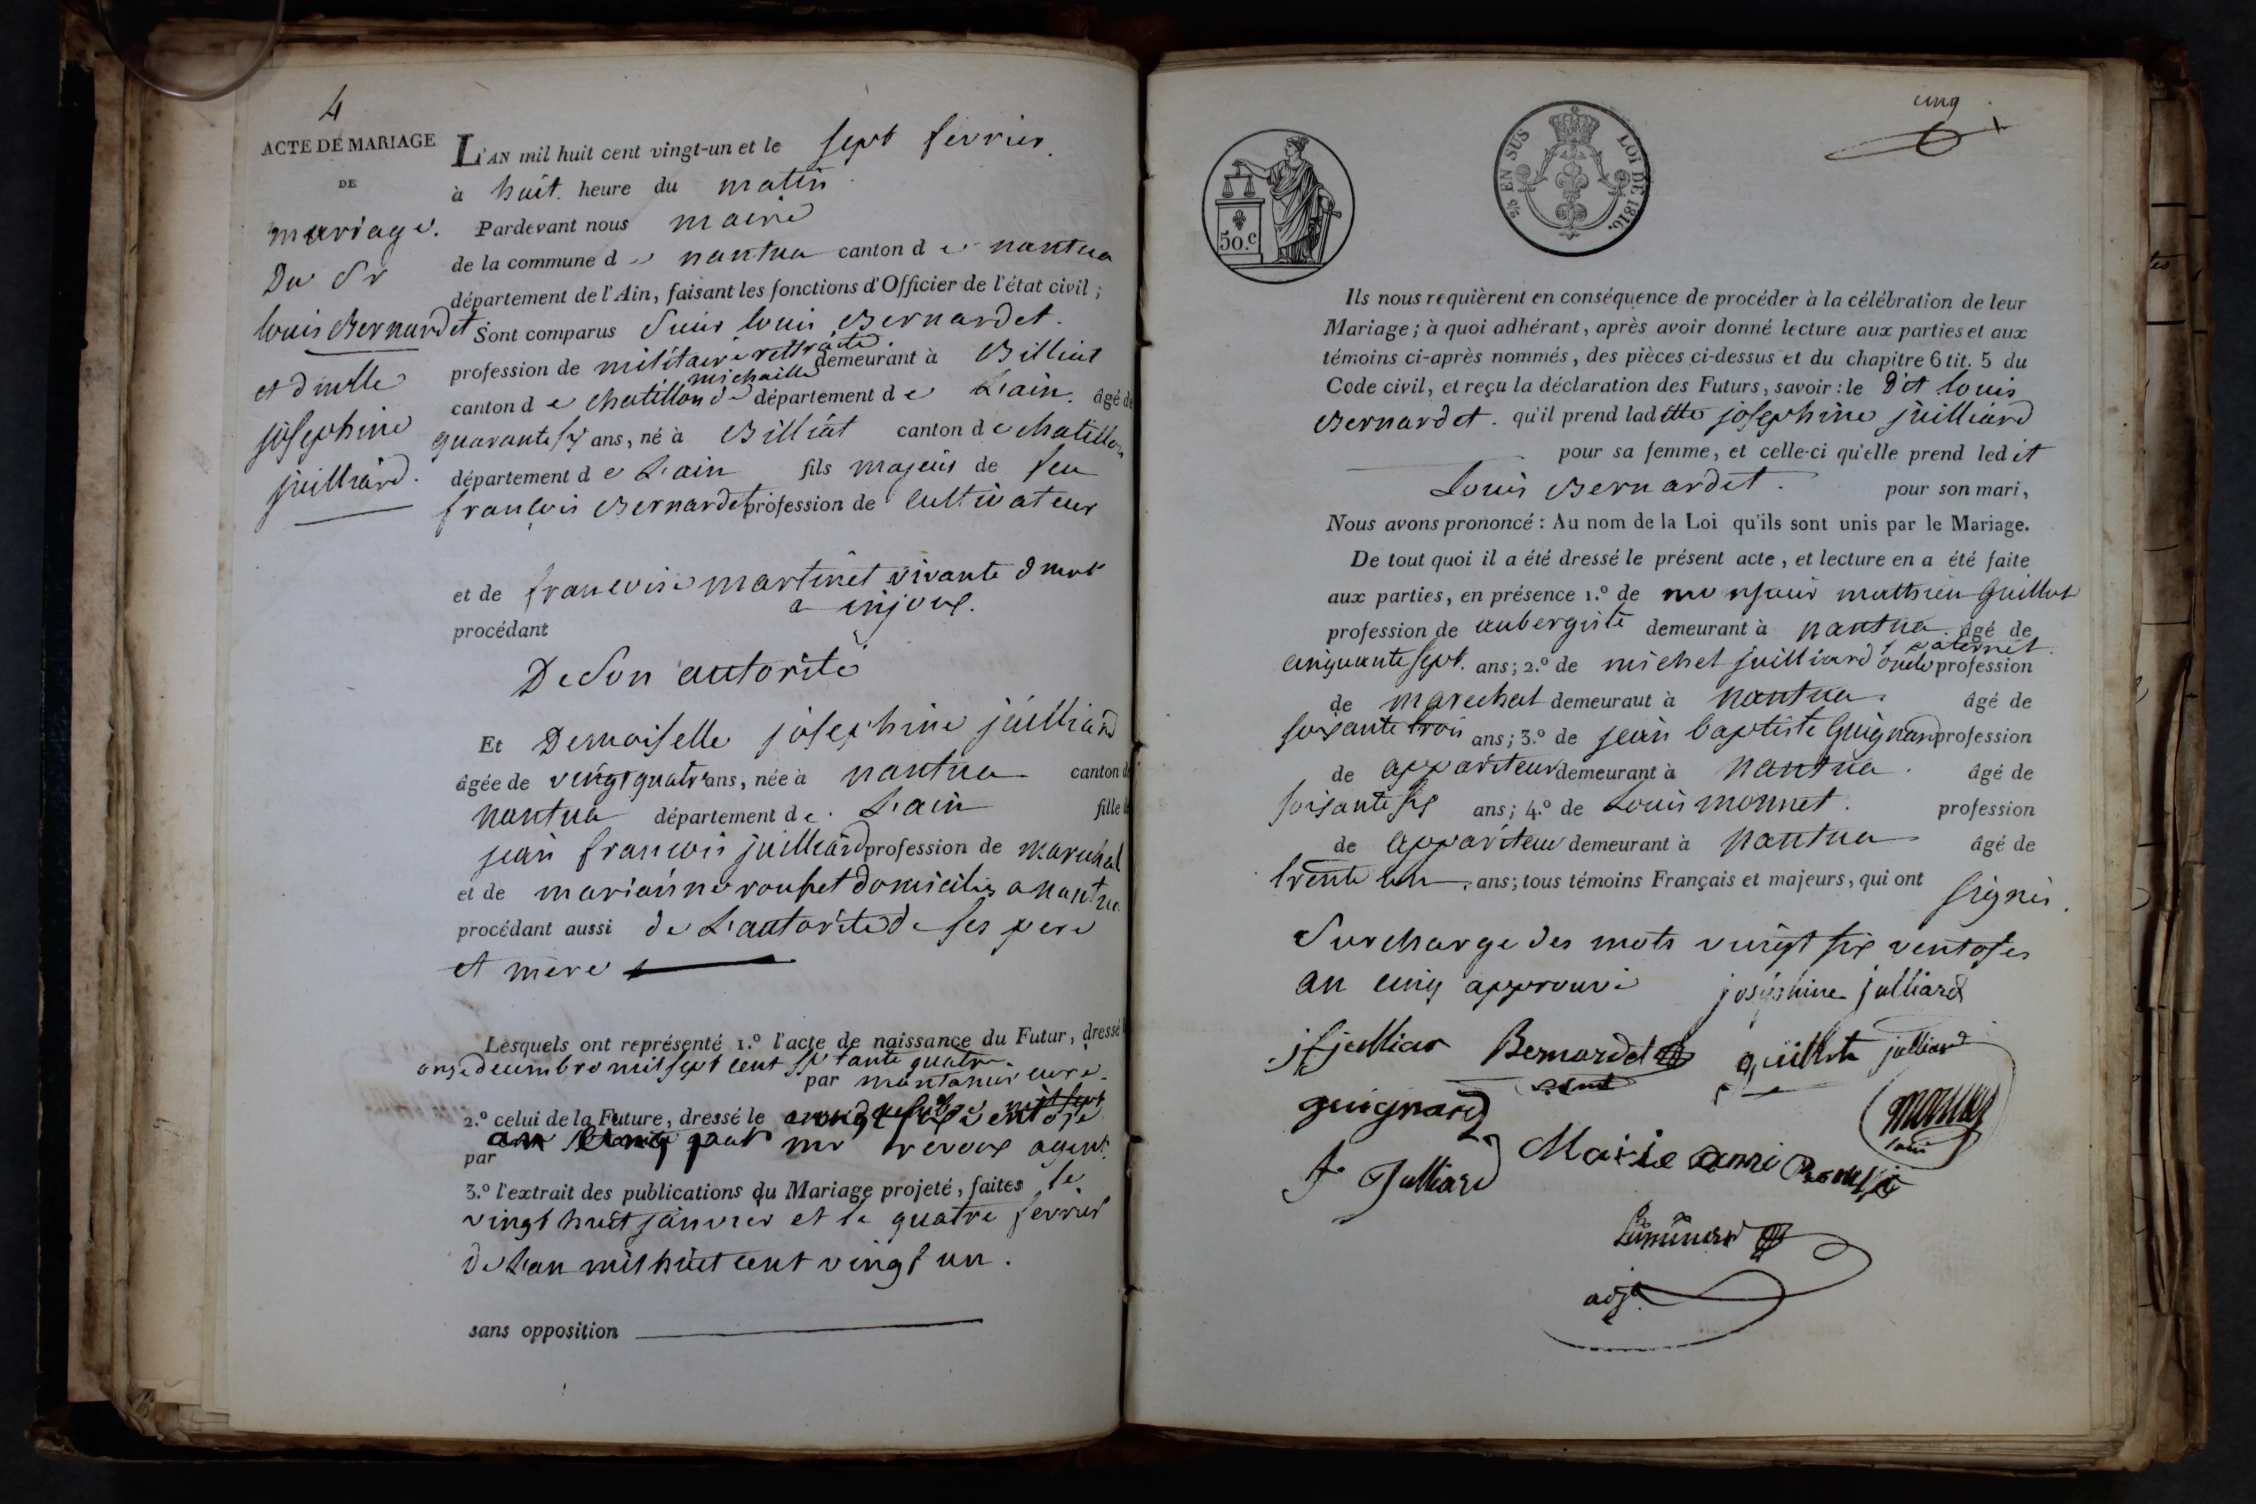 4
ACTE DE MARIAGE
DE
mariage.
Du Sr
louis Bernardet
et dmlle
josephine
juilliard.
L'AN mil huit cent vingt-un et le sept fevrier.
à huit heure du matin
Pardevant nous maire
de la commune de nantua canton de nantua
département de l'Ain, faisant les fonctions d'Officier de l'état civil;
Sont comparus Sieur louis Bernardet.
profession de militaire rettraite demeurant à Billiat
canton de chatillon de michaille département de L'ain. âgé de
quarante six ans, né à Billiat canton de chatillon
département de L'ain fils majeur de feu
francois Bernardet profession de cultivateur
et de francoise martinet vivante dmt
a injoux.
procédant
De Son autorité
Et Demoiselle josephine juilliard
âgée de vingt quatre ans, née à nantua canton de
nantua département de L'ain fille de
jean francois juilliard profession de marechal
et de marianne rousset domicilies a nantua
procédant aussi de L'autorité de ses pere
et mere
Lesquels ont représenté 1.º l'acte de naissance du Futur, dressé le
onze decembre mil sept cent septante quatre.
par montanier curé.
2.º celui de la Future, dressé le vingt six ventose
par an cinq par mr reroux agent.
3.º l'extrait des publications du Mariage projeté, faites le
vingt huit janvier et le quatre fevrier
de L'an mil huit cent vingt un.
sans opposition
cinq
50.c
2/5 EN SUS LOI DE 1816.
Ils nous requièrent en conséquence de procéder à la célébration de leur
Mariage; à quoi adhérant, après avoir donné lecture aux parties et aux
témoins ci-après nommés, des pièces ci-dessus et du chapitre 6 tit. 5 du
Code civil, et reçu la déclaration des Futurs, savoir: le dit louis
Bernardet. qu'il prend ladtte josephine juilliard
pour sa femme, et celle-ci qu'elle prend ledit
Louis Bernardet. pour son mari,
Nous avons prononcé: Au nom de la Loi qu'ils sont unis par le Mariage.
De tout quoi il a été dressé le présent acte, et lecture en a été faite
aux parties, en présence 1.º de monsieur mathieu Guillot
profession de aubergiste demeurant à nantua. âgé de
cinquante sept. ans; 2.º de michel juilliard oncle paternel. profession
de marechal demeuraut à nantua. âgé de
soixante trois ans; 3.º de jean baptiste Guignard profession
de appariteur demeurant à nantua. âgé de
soixante six ans; 4.º de Louis monnet. profession
de appariteur demeurant à nantua âgé de
trente un ans; tous témoins Français et majeurs, qui ont
signes.
Surcharge des mots vingt six ventoses
an cinq approuvé josephine julliard
jf julliar Bernardet guillot julliard
guignard monnet
louis
f. Julliard Marie anne Rousset
adjt